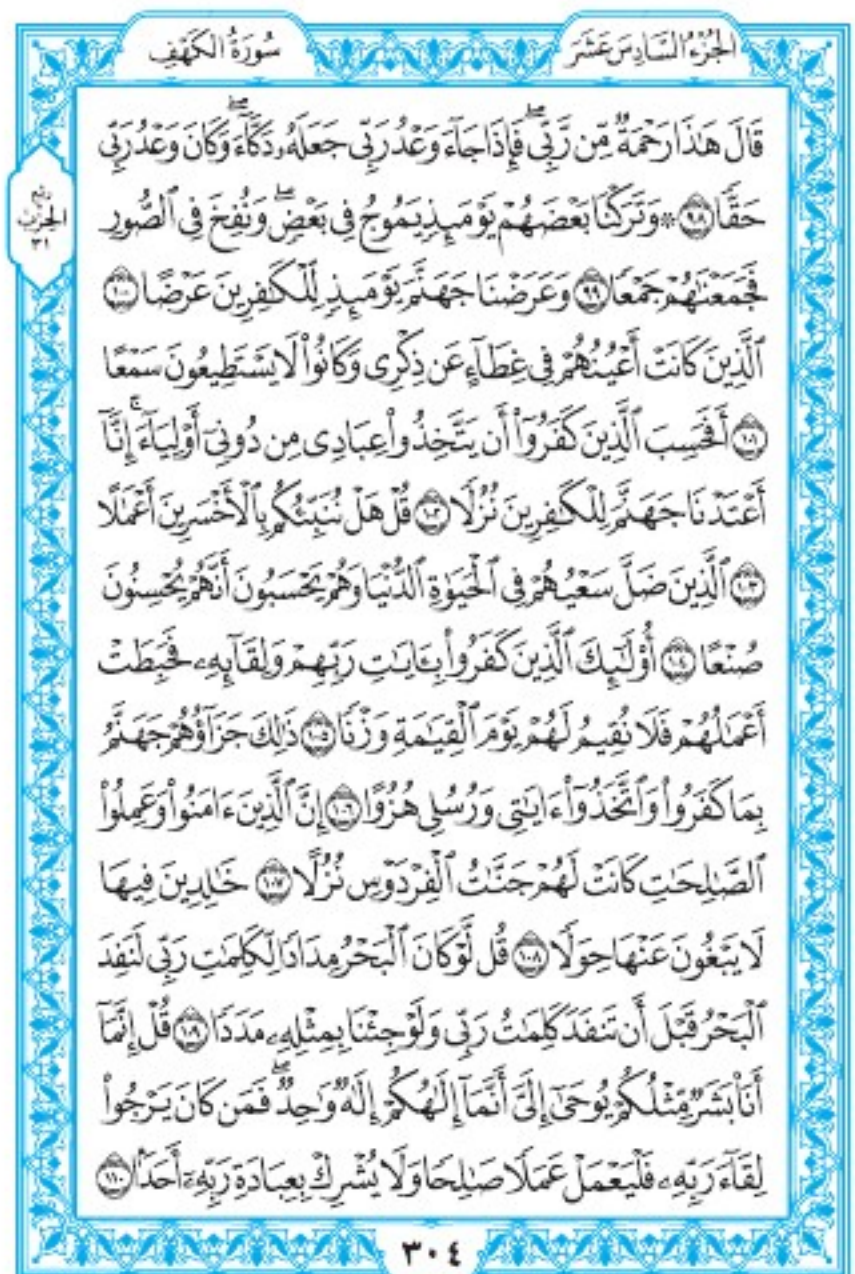 الجُزْءُ السَّادِسَ عَشَرَ
سُورَةُ الكَهْفِ
قَالَ هَٰذَا رَحْمَةٌ مِّن رَّبِّىۖ فَإِذَا جَآءَ وَعْدُ رَبِّى جَعَلَهُۥ دَكَّآءَۖ وَكَانَ وَعْدُ رَبِّى
حَقًّا ٩٨ ۞ وَتَرَكْنَا بَعْضَهُمْ يَوْمَئِذٍ يَمُوجُ فِى بَعْضٍۖ وَنُفِخَ فِى ٱلصُّورِ
فَجَمَعْنَٰهُمْ جَمْعًا ٩٩ وَعَرَضْنَا جَهَنَّمَ يَوْمَئِذٍ لِّلْكَٰفِرِينَ عَرْضًا ١٠٠
ٱلَّذِينَ كَانَتْ أَعْيُنُهُمْ فِى غِطَآءٍ عَن ذِكْرِى وَكَانُوا۟ لَا يَسْتَطِيعُونَ سَمْعًا
١٠١ أَفَحَسِبَ ٱلَّذِينَ كَفَرُوٓا۟ أَن يَتَّخِذُوا۟ عِبَادِى مِن دُونِىٓ أَوْلِيَآءَۚ إِنَّآ
أَعْتَدْنَا جَهَنَّمَ لِلْكَٰفِرِينَ نُزُلًا ١٠٢ قُلْ هَلْ نُنَبِّئُكُم بِٱلْأَخْسَرِينَ أَعْمَٰلًا
١٠٣ ٱلَّذِينَ ضَلَّ سَعْيُهُمْ فِى ٱلْحَيَوٰةِ ٱلدُّنْيَا وَهُمْ يَحْسَبُونَ أَنَّهُمْ يُحْسِنُونَ
صُنْعًا ١٠٤ أُو۟لَٰٓئِكَ ٱلَّذِينَ كَفَرُوا۟ بِـَٔايَٰتِ رَبِّهِمْ وَلِقَآئِهِۦ فَحَبِطَتْ
أَعْمَٰلُهُمْ فَلَا نُقِيمُ لَهُمْ يَوْمَ ٱلْقِيَٰمَةِ وَزْنًا ١٠٥ ذَٰلِكَ جَزَآؤُهُمْ جَهَنَّمُ
بِمَا كَفَرُوا۟ وَٱتَّخَذُوٓا۟ ءَايَٰتِى وَرُسُلِى هُزُوًا ١٠٦ إِنَّ ٱلَّذِينَ ءَامَنُوا۟ وَعَمِلُوا۟
ٱلصَّٰلِحَٰتِ كَانَتْ لَهُمْ جَنَّٰتُ ٱلْفِرْدَوْسِ نُزُلًا ١٠٧ خَٰلِدِينَ فِيهَا
لَا يَبْغُونَ عَنْهَا حِوَلًا ١٠٨ قُل لَّوْ كَانَ ٱلْبَحْرُ مِدَادًا لِّكَلِمَٰتِ رَبِّى لَنَفِدَ
ٱلْبَحْرُ قَبْلَ أَن تَنفَدَ كَلِمَٰتُ رَبِّى وَلَوْ جِئْنَا بِمِثْلِهِۦ مَدَدًا ١٠٩ قُلْ إِنَّمَآ
أَنَا۠ بَشَرٌ مِّثْلُكُمْ يُوحَىٰٓ إِلَىَّ أَنَّمَآ إِلَٰهُكُمْ إِلَٰهٌ وَٰحِدٌۖ فَمَن كَانَ يَرْجُوا۟
لِقَآءَ رَبِّهِۦ فَلْيَعْمَلْ عَمَلًا صَٰلِحًا وَلَا يُشْرِكْ بِعِبَادَةِ رَبِّهِۦٓ أَحَدًۢا ١١٠
رُبع
الحِزْب
٣١
٣٠٤